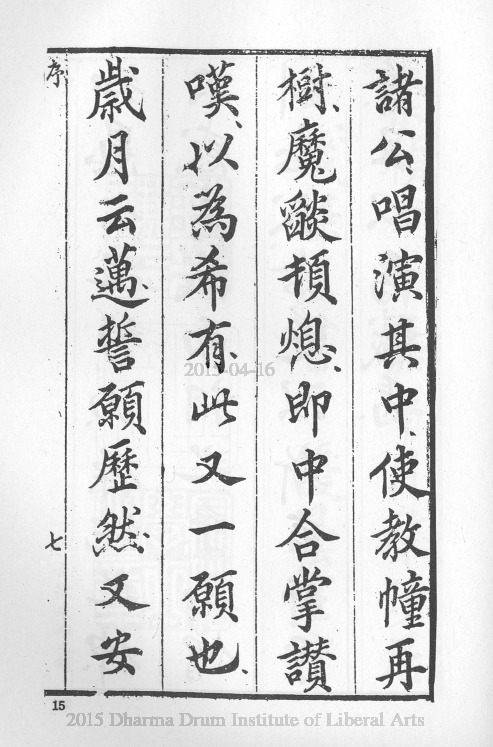 諸公唱演其中、使教幢再
樹、魔燄頓熄、即中合掌讃
嘆、以為希有、此又一願也、
歲月云邁、誓願歷然、又安
序
七
15
2015-04-16
2015 Dharma Drum Institute of Liberal Arts